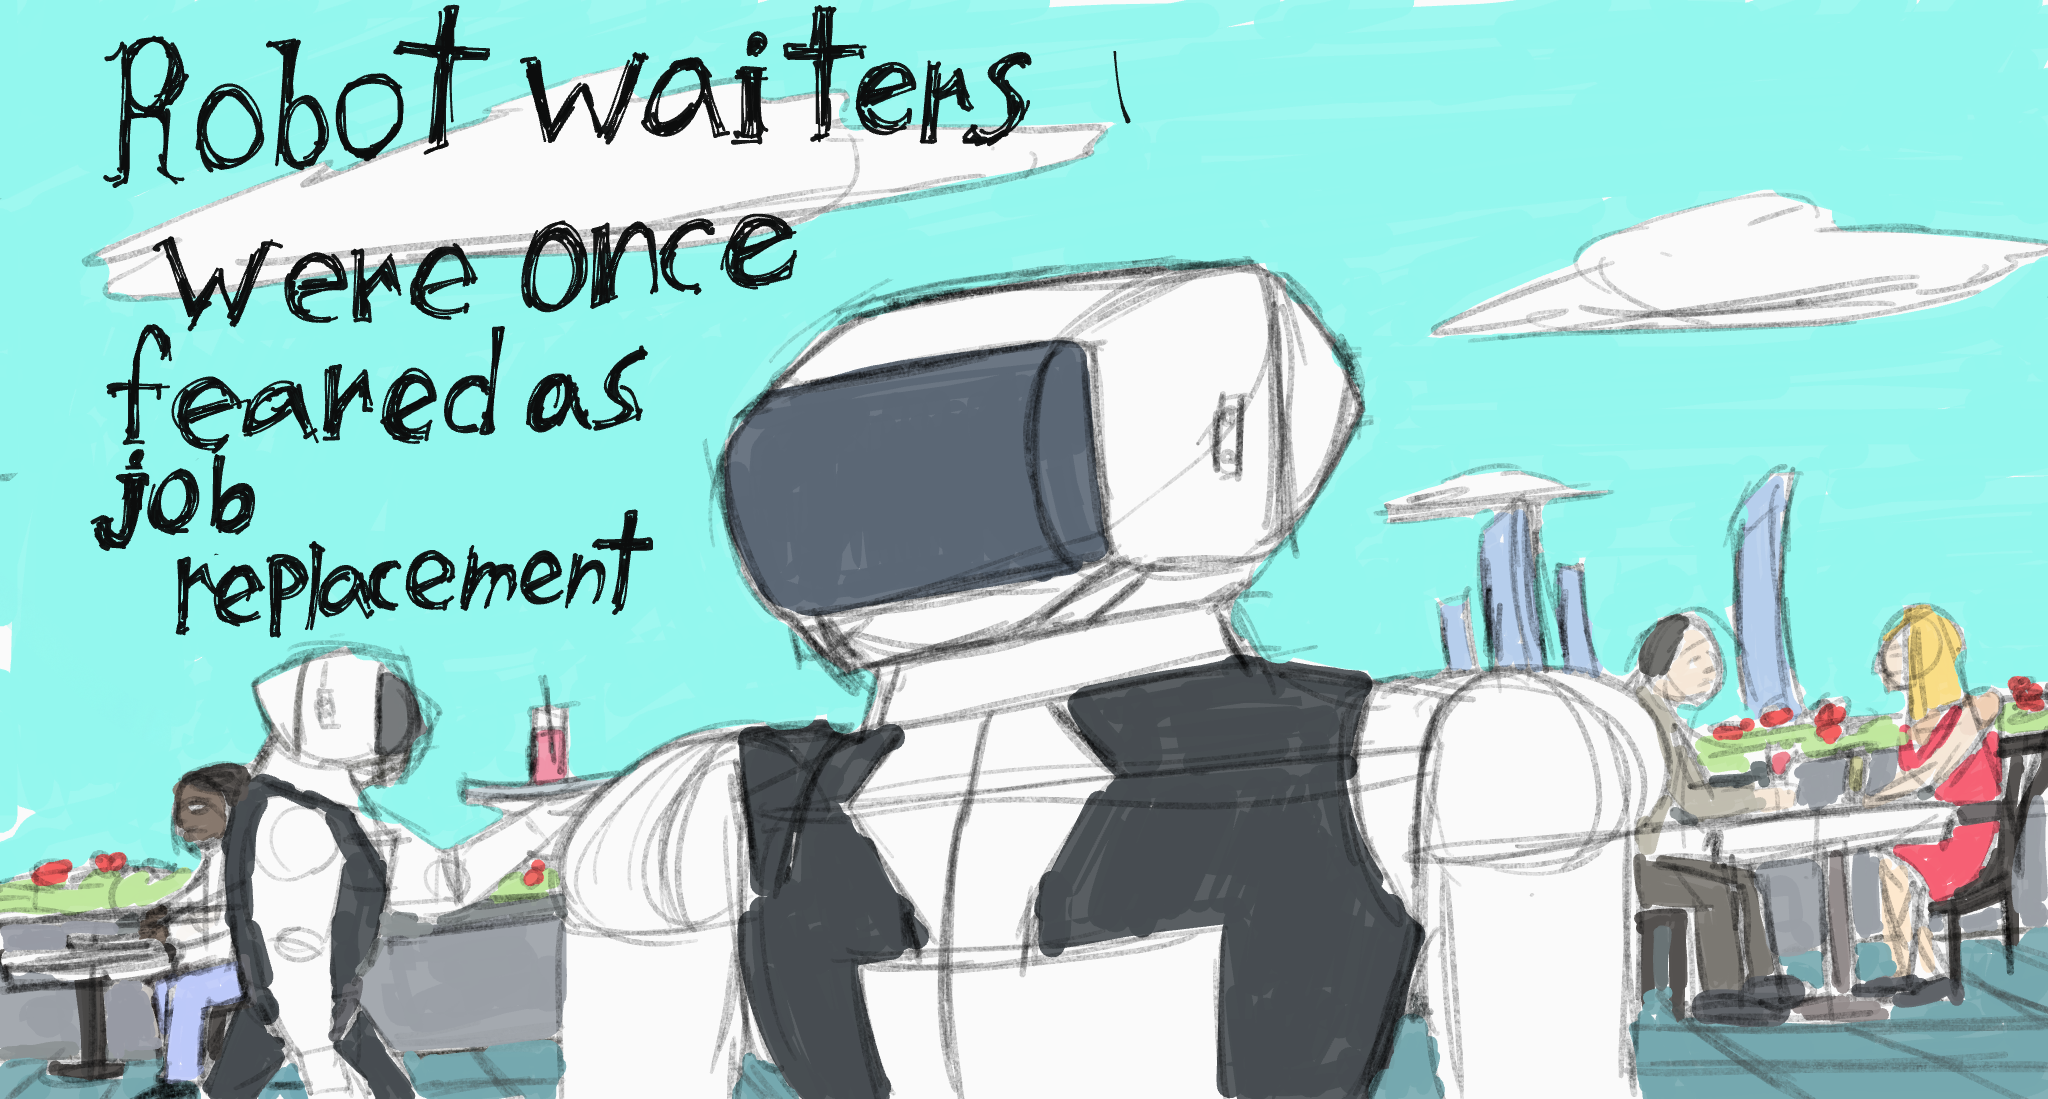 Robot waiters
were once
feared as
job
replacement